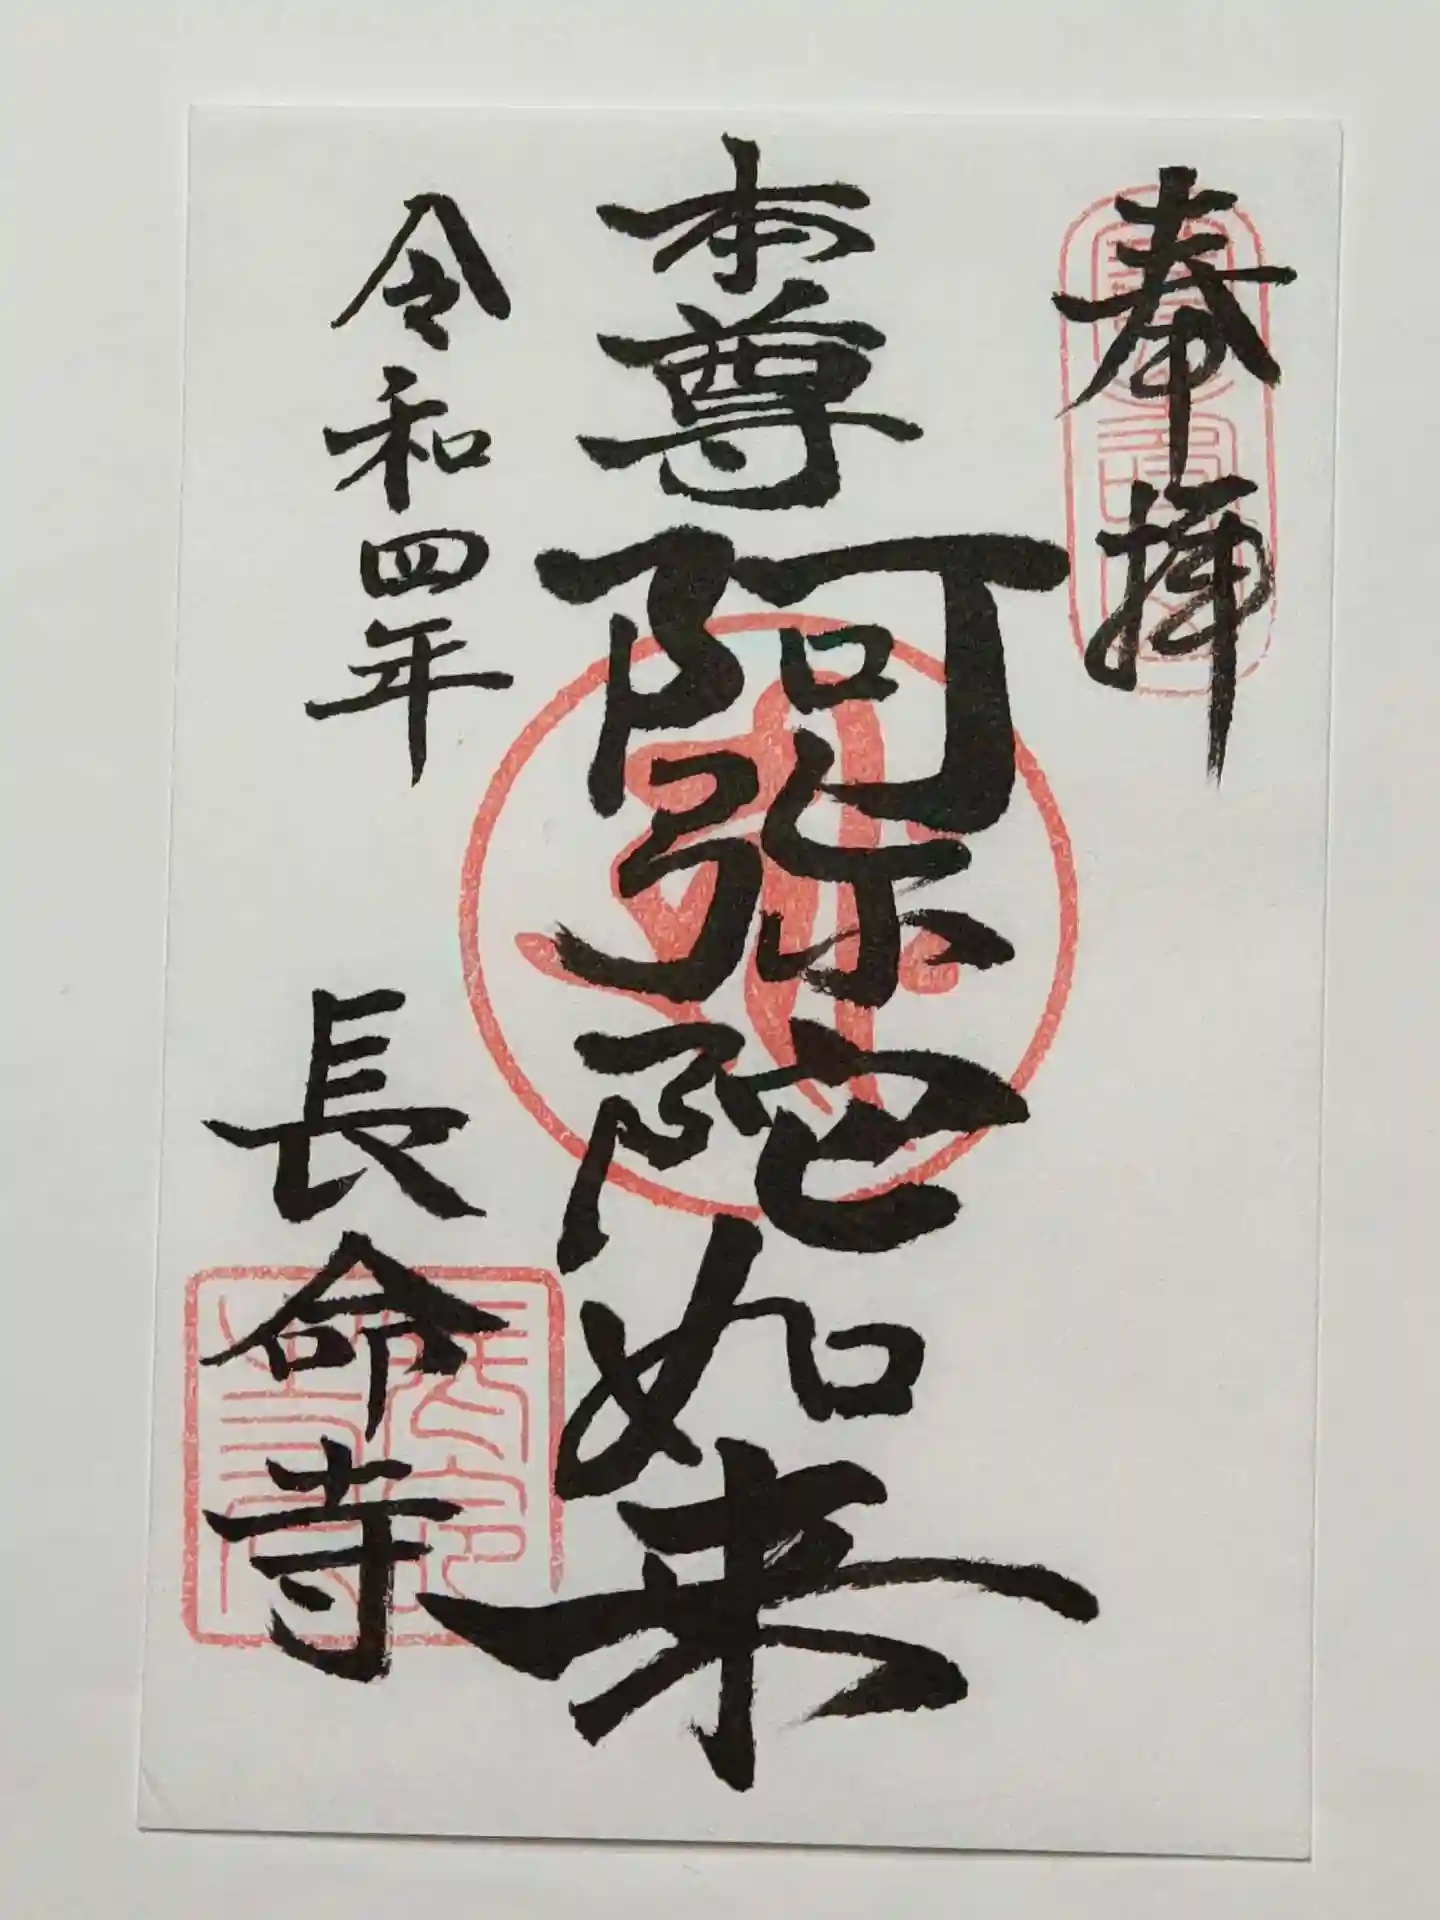 奉拝
本尊阿弥陀如来
令和四年
長命寺